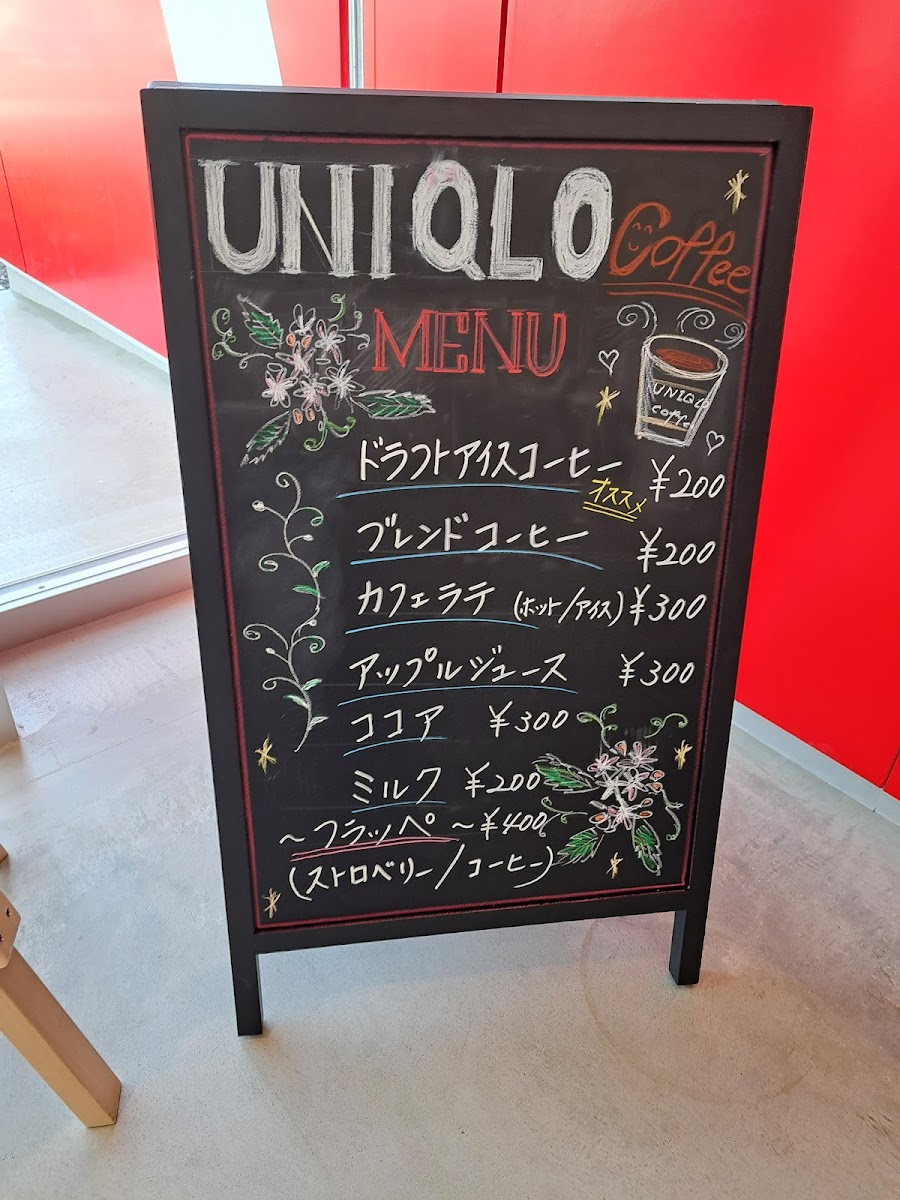 UNIQLO Coffee
MENU
UNIQLO
coffe
ドラフトアイスコーヒー ¥200
オススメ
ブレンドコーヒー ¥200
カフェラテ (ホット/アイス) ¥300
アップルジュース ¥300
ココア ¥300
ミルク ¥200
~フラッペ~ ¥400
(ストロベリー/コーヒー)